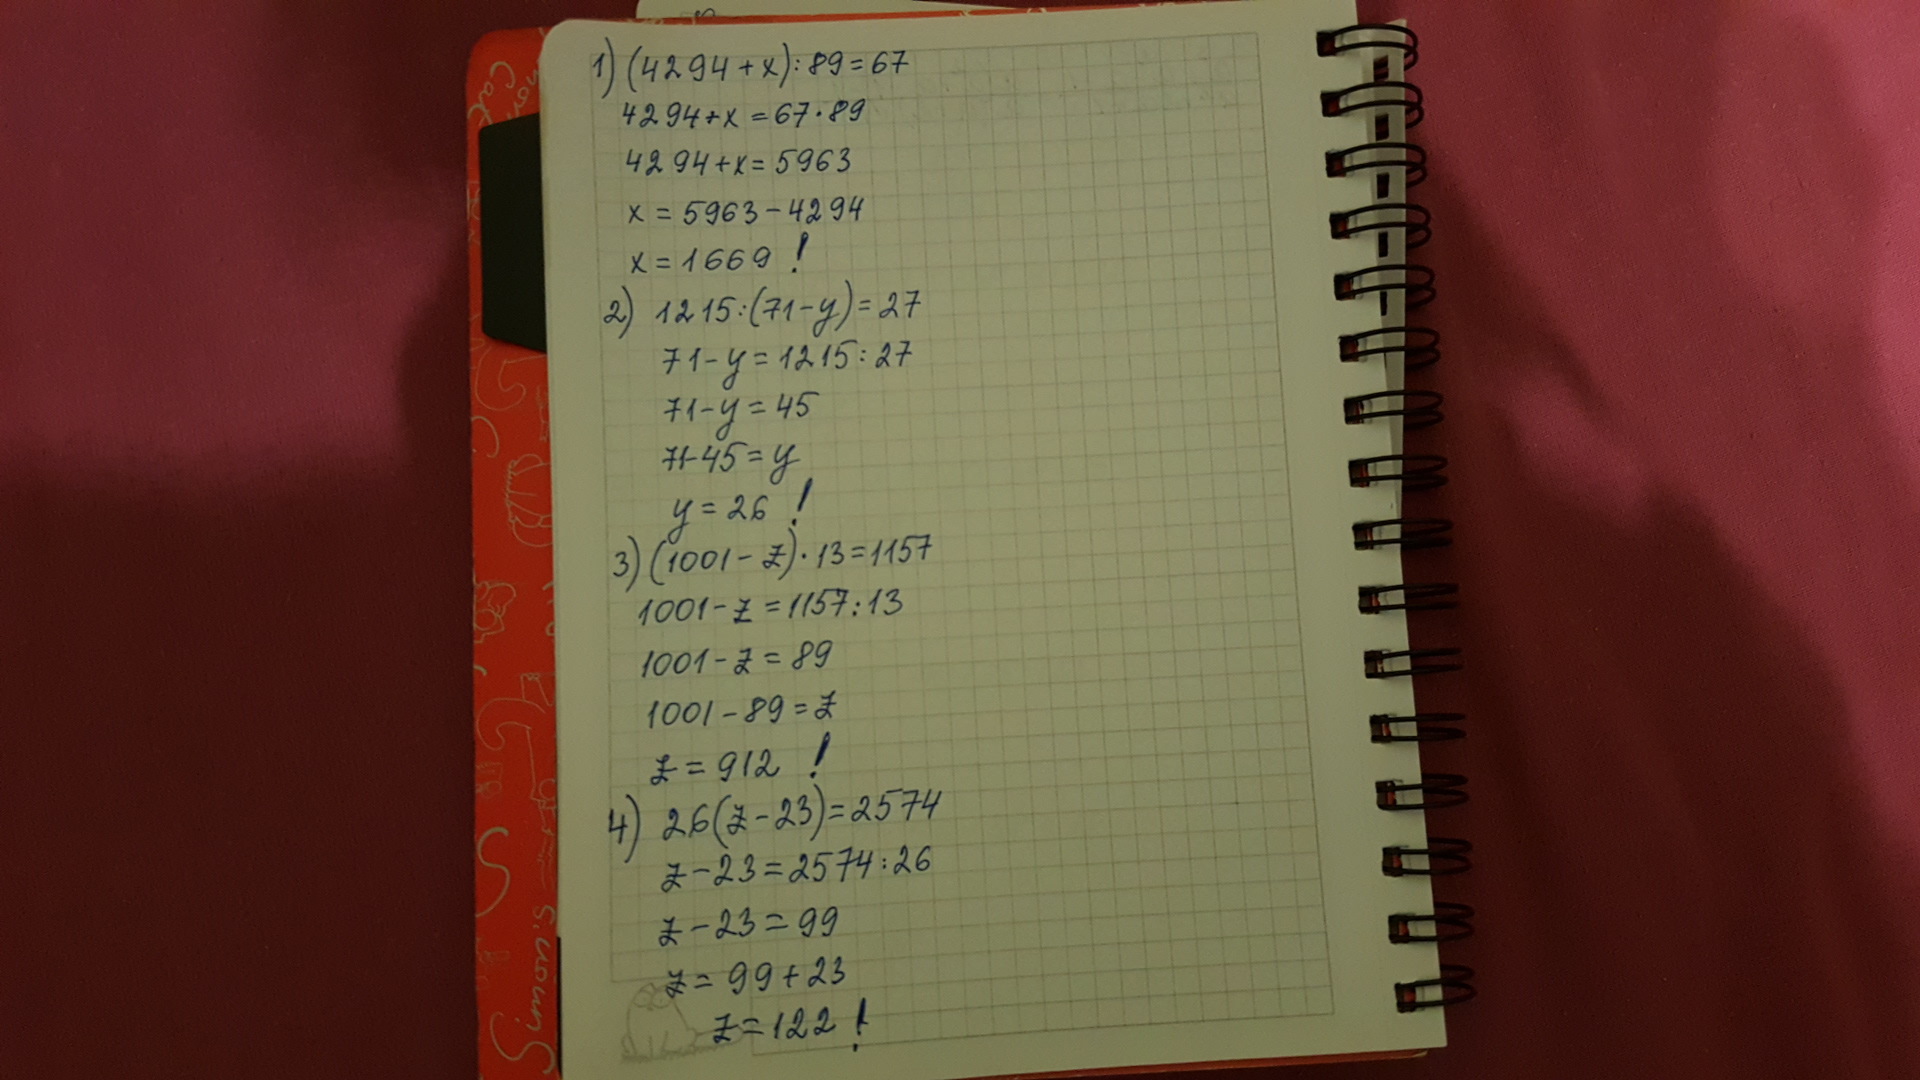 1) (4294+x):89=67
4294+x=67·89
4294+x=5963
x=5963-4294
x=1669 !
2) 1215:(71-y)=27
71-y=1215:27
71-y=45
71-45=y
y=26 !
3) (1001-z)·13=1157
1001-z=1157:13
1001-z=89
1001-89=z
z=912 !
4) 26(z-23)=2574
z-23=2574:26
z-23=99
z=99+23
z=122 !